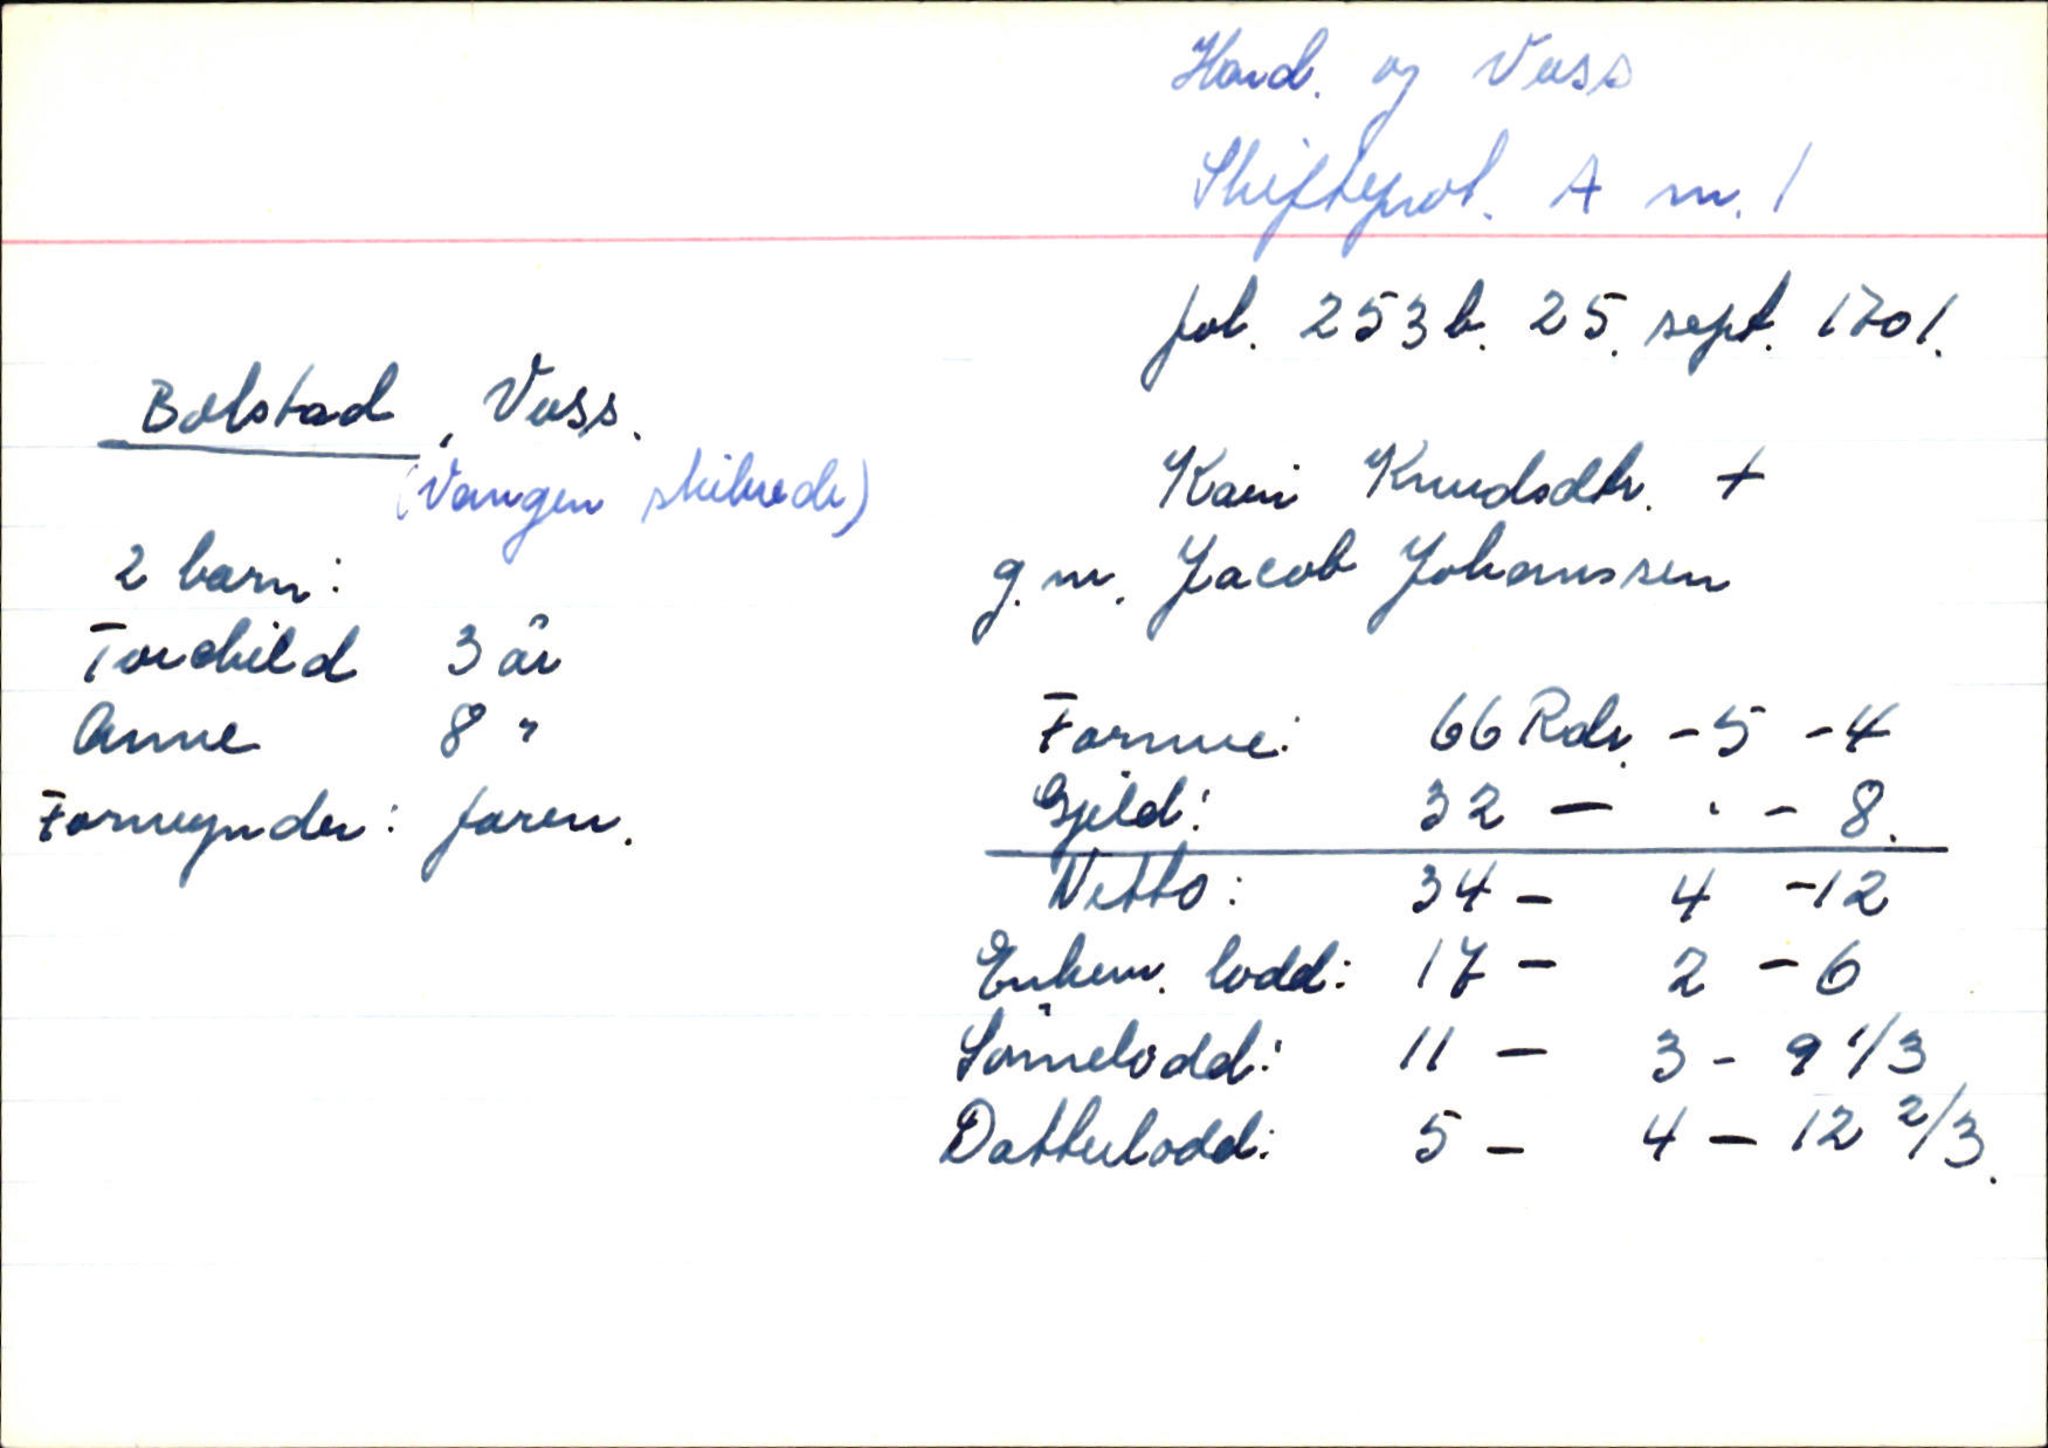 Hard. og Voss
Skifteprot. A nr. 1
fol. 253b. 25. sept. 1701.
Bolstad, Voss.
(Vangen skibrede)
Kari Knudsdtr. +
g.m. Jacob Johanssen
2 barn:
Torchild 3 år
Anne 8 "
Formynder: faren.
Formue: 66 Rdr. - 5 - 4
Gjeld: 32 — . - 8.
Netto: 34 - 4 - 12
Enkem. lodd: 17 - 2 - 6
Sønnelodd: 11 - 3 - 9 1/3
Datterlodd: 5 - 4 - 12 2/3.